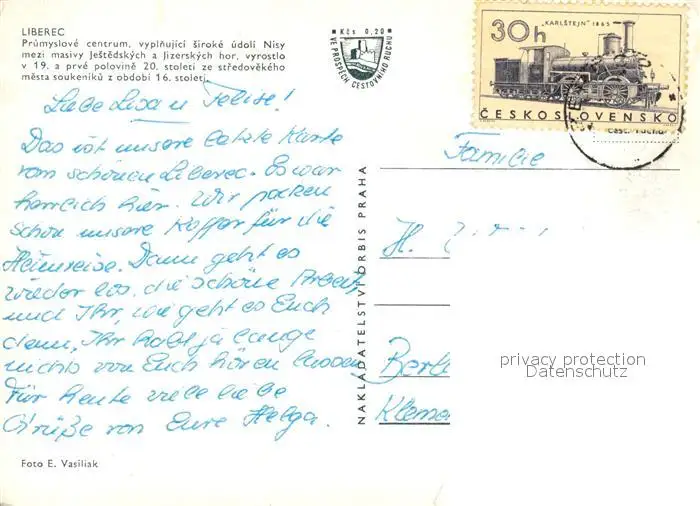 LIBEREC
Průmyslové centrum, vyplňující široké údolí Nisy
mezi masivy Ještědských a Jizerských hor, vyrostlo
v 19. a prvé polovině 20. století ze středověkého
města soukeníků z období 16. století.
Kčs 0,20
VE PROSPĚCH CESTOVNÍHO RUCHU
„KARLŠTEJN" 1865
30h
ČESKOSLOVENSKO
Liebe Lisa u Felix!
Das ist unsere letzte Karte
vom schönen Liberec. Es war
herrlich hier. Wir packen
schon unsere Koffer für die
Heimreise. Dann geht es
wieder los, die schöne Arbeit,
und Ihr, wie geht es Euch
denn, Ihr habt ja lange
nichts von Euch hören lassen.
Für heute viele liebe
Grüße von Eure Helga.
Familie
H.
Berl
Kleme
NAKLADATELSTVÍ ORBIS PRAHA
privacy protection
Datenschutz
Foto E. Vasiliak